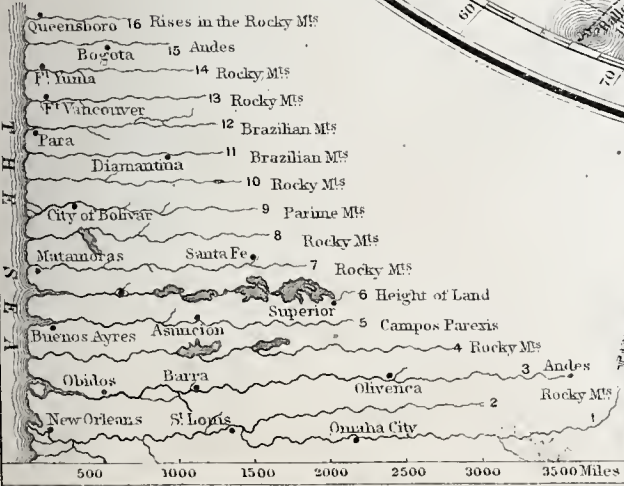 60
70
Queensboro 16 Rises in the Rocky Mts
Bogota 15 Andes
Ft Yuma 14 Rocky Mts
Ft Vancouver 13 Rocky Mts
Para 12 Brazilian Mts
Diamantina 11 Brazilian Mts
10 Rocky Mts
City of Bolivar 9 Parime Mts
8 Rocky Mts
Matamoras Santa Fe 7 Rocky Mts
6 Height of Land
Superior
Buenos Ayres Asuncion 5 Campos Parexis
4 Rocky Mts
3 Andes
Obidos Barra Olivenca Rocky Mts
2
New Orleans St Louis Omaha City 1
500 1000 1500 2000 2500 3000 3500 Miles
THE SEA